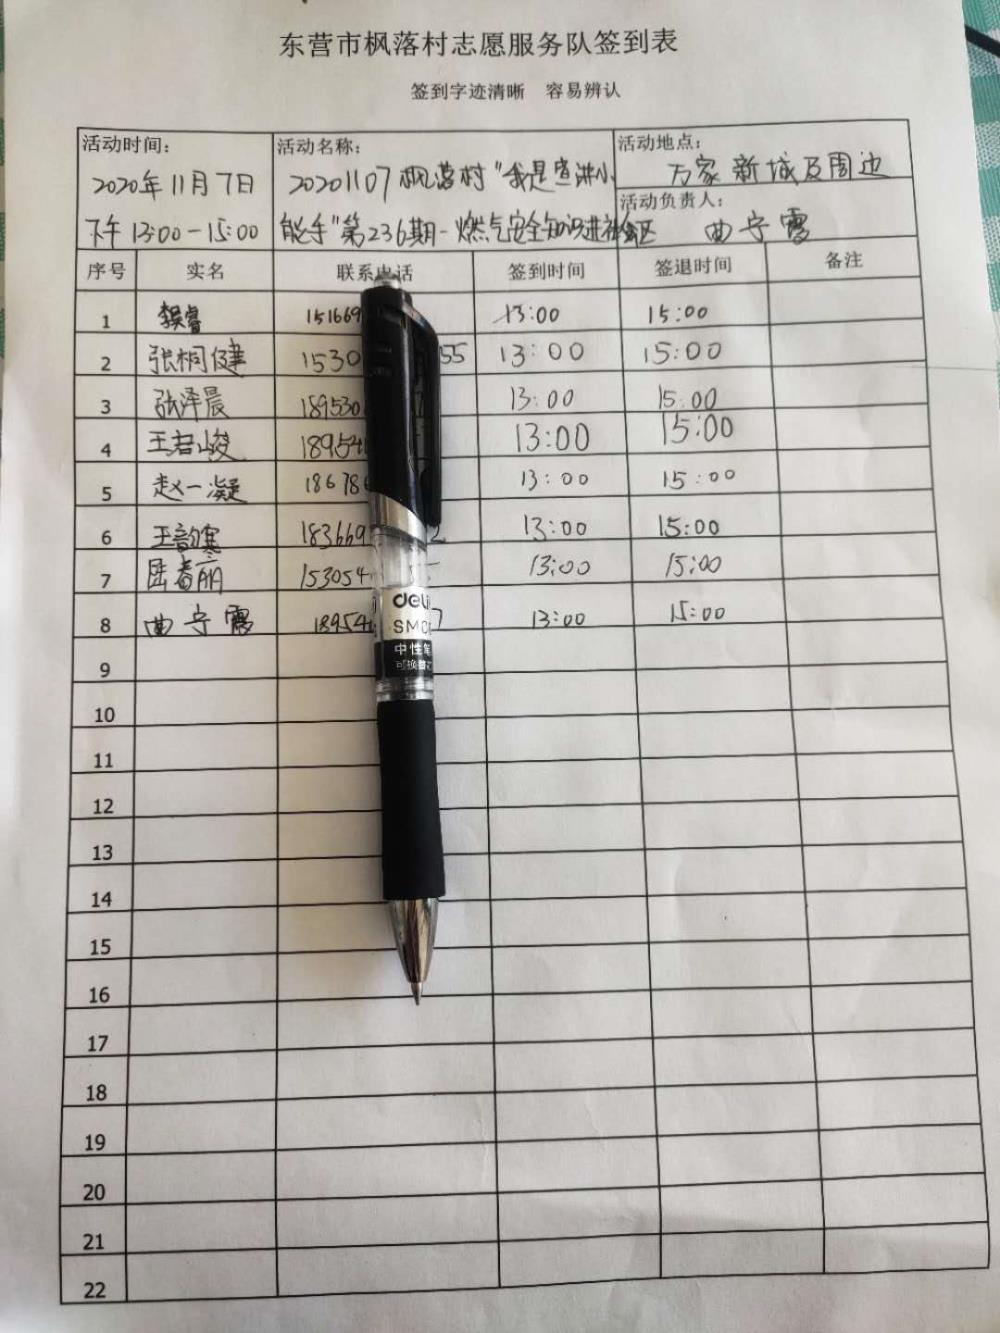 东营市枫落村志愿服务队签到表
签到字迹清晰 容易辨认
活动时间：
2020年11月7日
下午13:00-15:00
活动名称：
20201107枫落村"我是宣讲小
能手"第236期-燃气安全知识进社区
活动地点：
万家新城及周边
活动负责人：
曲宁霞
序号 实名 联系电话 签到时间 签退时间 备注
1 睿 151669 13:00 15:00
2 张桐健 1530 55 13:00 15:00
3 张泽晨 189530 13:00 15:00
4 王若峻 18954 13:00 15:00
5 赵一凝 18678 13:00 15:00
6 王韵寒 183669 2 13:00 15:00
7 陆春丽 153054 13:00 15:00
8 曲宁霞 18954 7 13:00 15:00
9
10
11
12
13
14
15
16
17
18
19
20
21
22
deli
SMO
中性笔
可换替芯